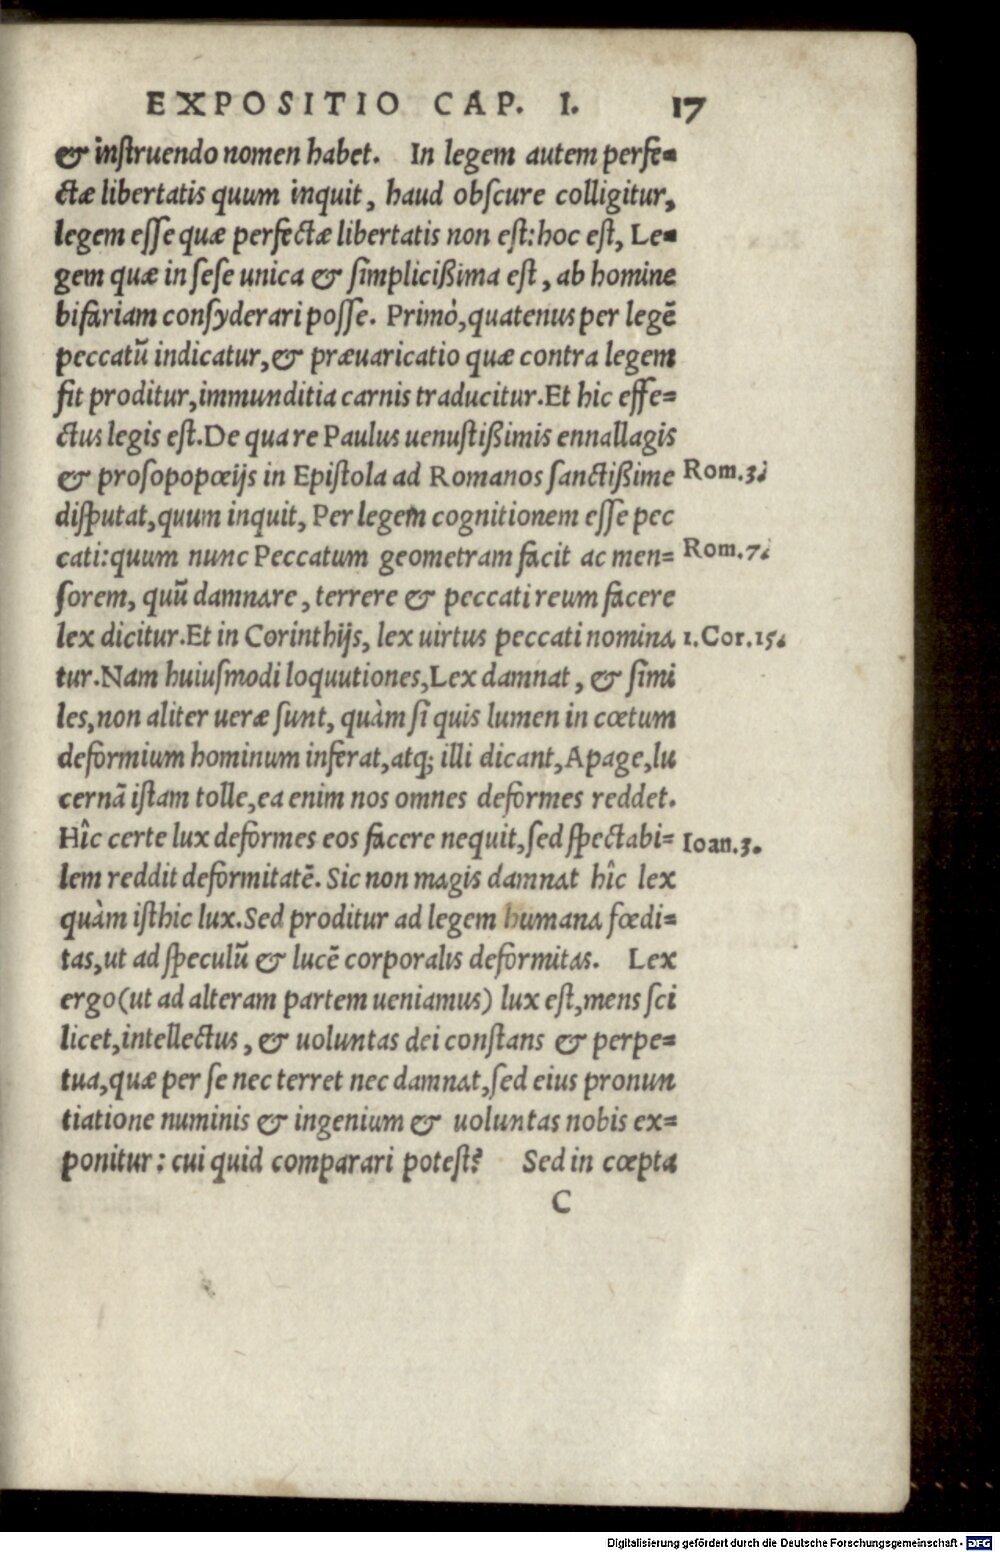 EXPOSITIO CAP. I. 17
& instruendo nomen habet. In legem autem perfe=
ctæ libertatis quum inquit, haud obscure colligitur,
legem esse quæ perfectæ libertatis non est: hoc est, Le=
gem quæ in sese unica & simplicißima est, ab homine
bifariam consyderari posse. Primò, quatenus per legẽ
peccatũ indicatur, & præuaricatio quæ contra legem
fit proditur, immunditia carnis traducitur. Et hic effe=
ctus legis est. De qua re Paulus uenustißimis ennallagis
& prosopopœijs in Epistola ad Romanos sanctißime Rom.3.
disputat, quum inquit, Per legem cognitionem esse pec
cati: quum nunc Peccatum geometram facit ac men= Rom.7.
sorem, quũ damnare, terrere & peccati reum facere
lex dicitur. Et in Corinthijs, lex uirtus peccati nomina 1.Cor.15.
tur. Nam huiusmodi loquutiones, Lex damnat, & simi
les, non aliter ueræ sunt, quàm si quis lumen in cœtum
deformium hominum inferat, atq; illi dicant, Apage, lu
cernã istam tolle, ea enim nos omnes deformes reddet.
Hîc certe lux deformes eos facere nequit, sed spectabi= Ioan.3.
lem reddit deformitatẽ. Sic non magis damnat hîc lex
quàm isthic lux. Sed proditur ad legem humana fœdi=
tas, ut ad speculũ & lucẽ corporalis deformitas. Lex
ergo (ut ad alteram partem ueniamus) lux est, mens sci
licet, intellectus, & uoluntas dei constans & perpe=
tua, quæ per se nec terret nec damnat, sed eius pronun
tiatione numinis & ingenium & uoluntas nobis ex=
ponitur: cui quid comparari potest? Sed in cœpta
C
Digitalisierung gefördert durch die Deutsche Forschungsgemeinschaft - DFG